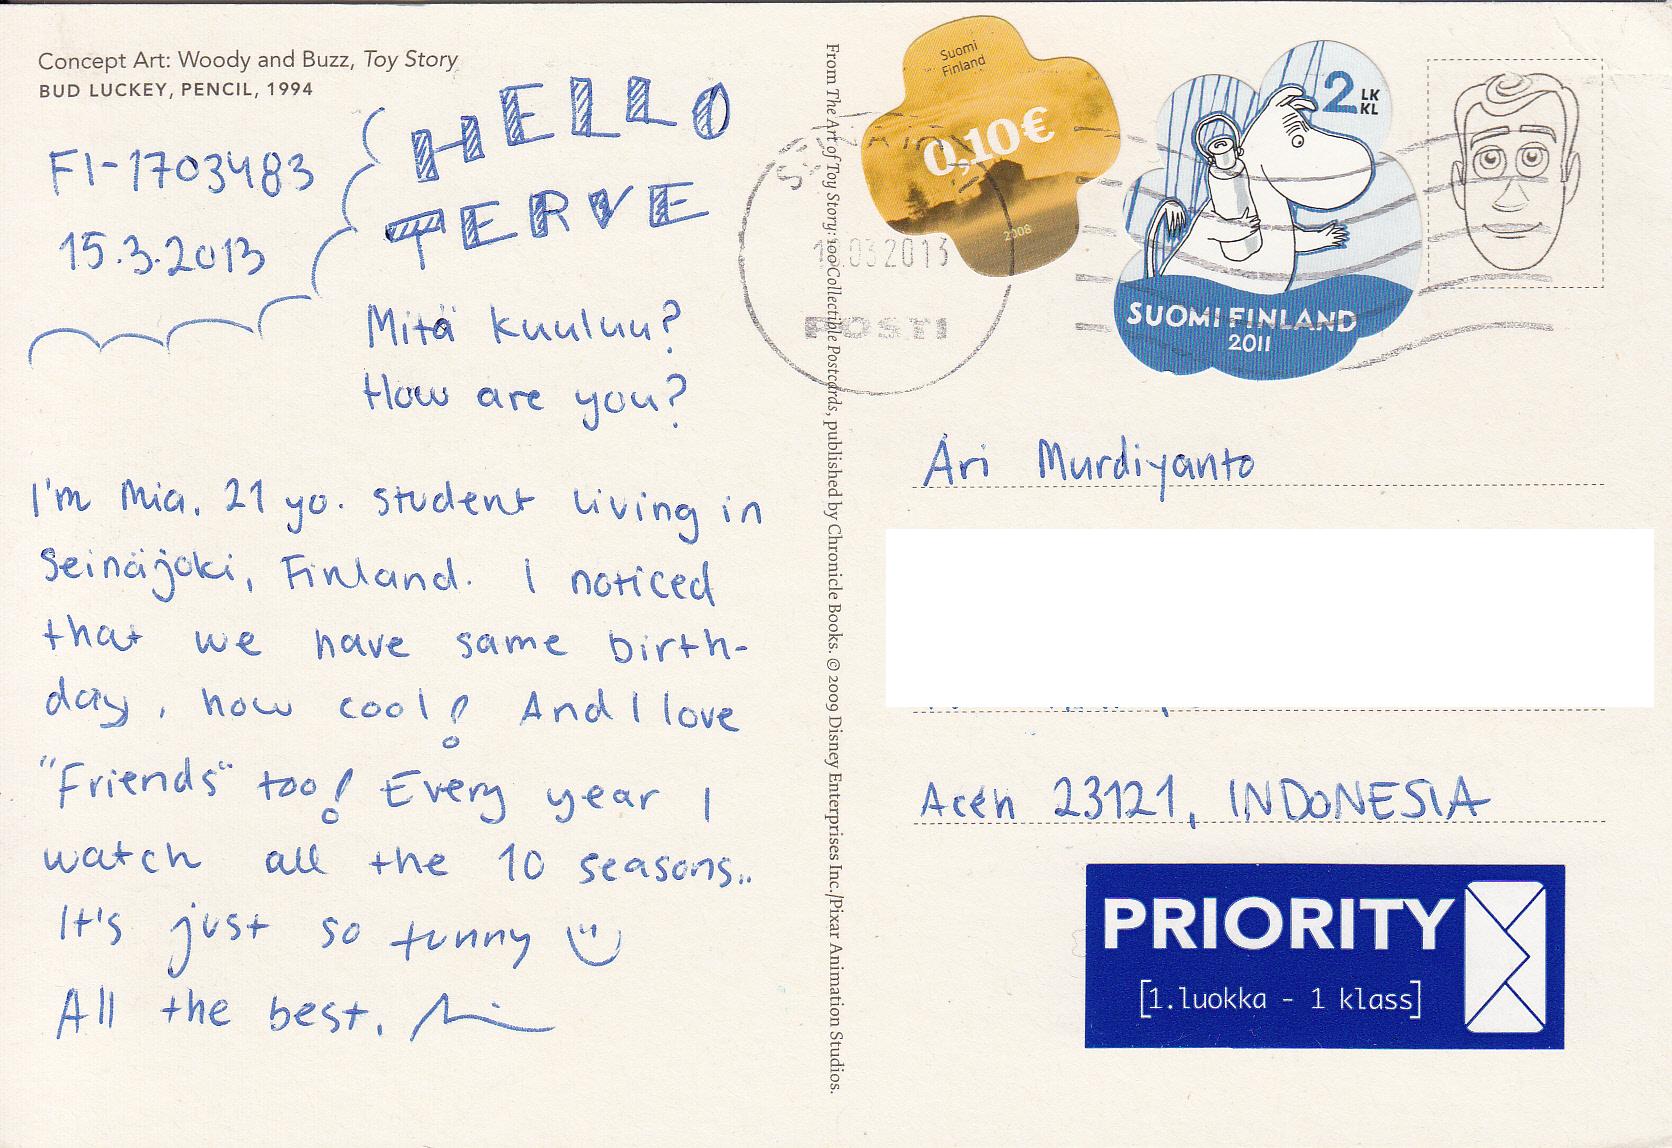 Concept Art: Woody and Buzz, Toy Story
BUD LUCKEY, PENCIL, 1994
FI-1703483
15.3.2013
HELLO
TERVE
Mitä kuuluu?
How are you?
I'm Mia. 21 yo. student living in
Seinäjoki, Finland. I noticed
that we have same birth-
day, how cool! And I love
"Friends" too! Every year I
watch all the 10 seasons..
It's just so funny
All the best,
From The Art of Toy Story: 100 Collectible Postcards, published by Chronicle Books. © 2009 Disney Enterprises Inc./Pixar Animation Studios.
Suomi
Finland
0,10€
2008
03 2013
POSTI
2 LK
KL
SUOMI FINLAND
2011
Ari Murdiyanto
Aceh 23121, INDONESIA
PRIORITY
[1.luokka - 1 klass]